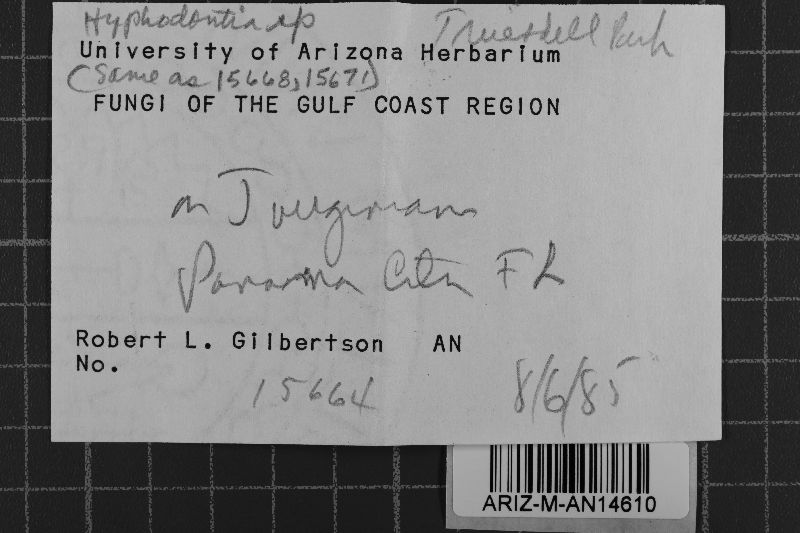 Hyphodontia sp Truesdell Park
University of Arizona Herbarium
(Same as 15668, 15671)
FUNGI OF THE GULF COAST REGION
on J virginiana
Panama City FL
Robert L. Gilbertson AN
No. 15664 8/6/85
ARIZ-M-AN14610